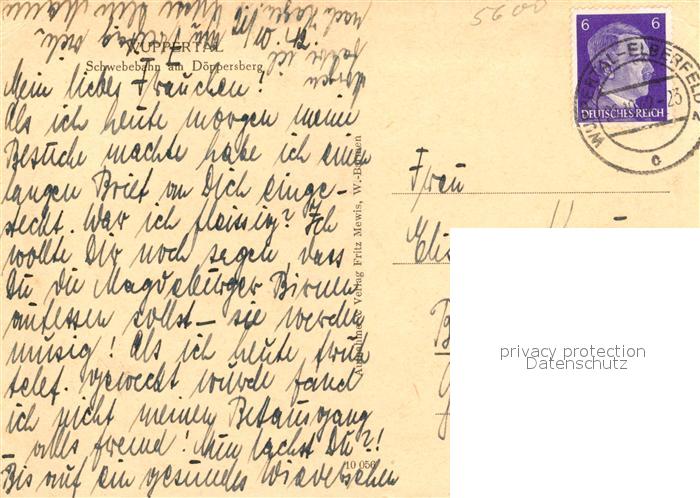 5600
21/10.42.
WUPPERTAL
Schwebebahn am Döppersberg
Mein liebes Frauchen!
Als ich heute morgen meine
Besuche machte habe ich einen
langen Brief an Dich einge-
steckt. War ich fleissig? Ich
wollte Dir noch sagen, dass
Du die Magdeburger Birnen
aufessen sollst – sie werden
musig! Als ich heute früh
telef. geweckt wurde fand
ich nicht meinen Bettausgang
– alles fremd! Nun lachst Du?!
Bis auf ein gesundes Wiedersehen
10 056
Aufnahme u. Verlag Fritz Mewis, W.-Barmen
6 6
DEUTSCHES REICH
WUPPERTAL-ELBERFELD 2
c
Frau
privacy protection
Datenschutz